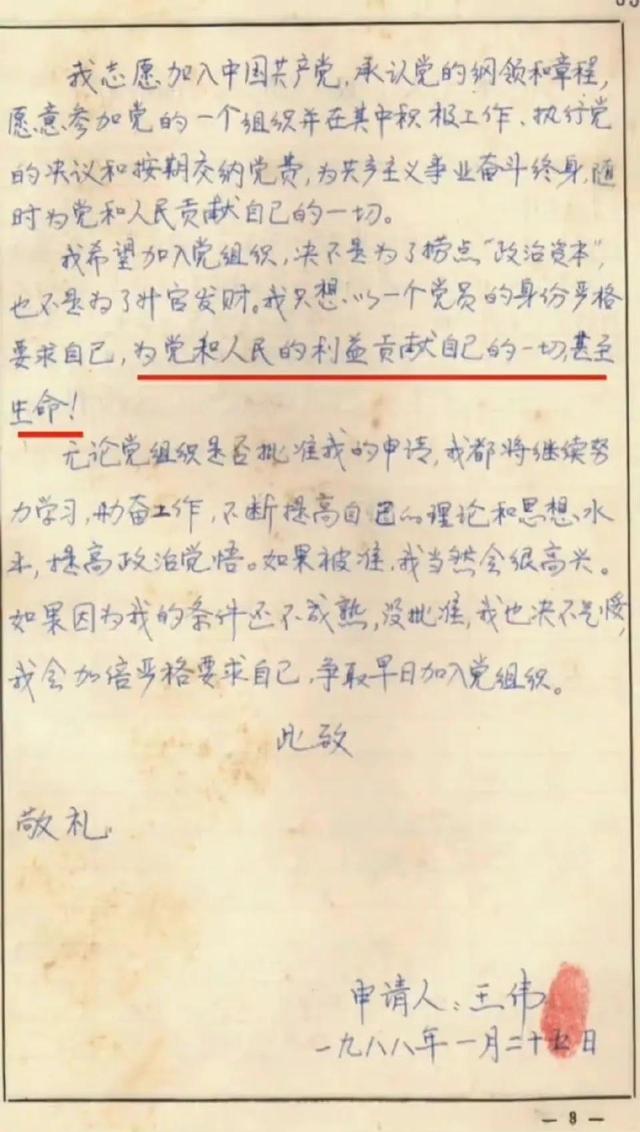 我志愿加入中国共产党，承认党的纲领和章程，
愿意参加党的一个组织并在其中积极工作、执行党
的决议和按期交纳党费，为共产主义事业奋斗终身，随
时为党和人民贡献自己的一切。
我希望加入党组织，决不是为了捞点“政治资本”，
也不是为了升官发财。我只想以一个党员的身份严格
要求自己，为党和人民的利益贡献自己的一切，甚至
生命！
无论党组织是否批准我的申请，我都将继续努
力学习，勤奋工作，不断提高自己的理论和思想水
平，提高政治觉悟。如果被准，我当然会很高兴。
如果因为我的条件还不成熟，没批准，我也决不气馁，
我会加倍严格要求自己，争取早日加入党组织。
此致
敬礼
申请人：王伟
一九八八年一月二十五日
— 8 —